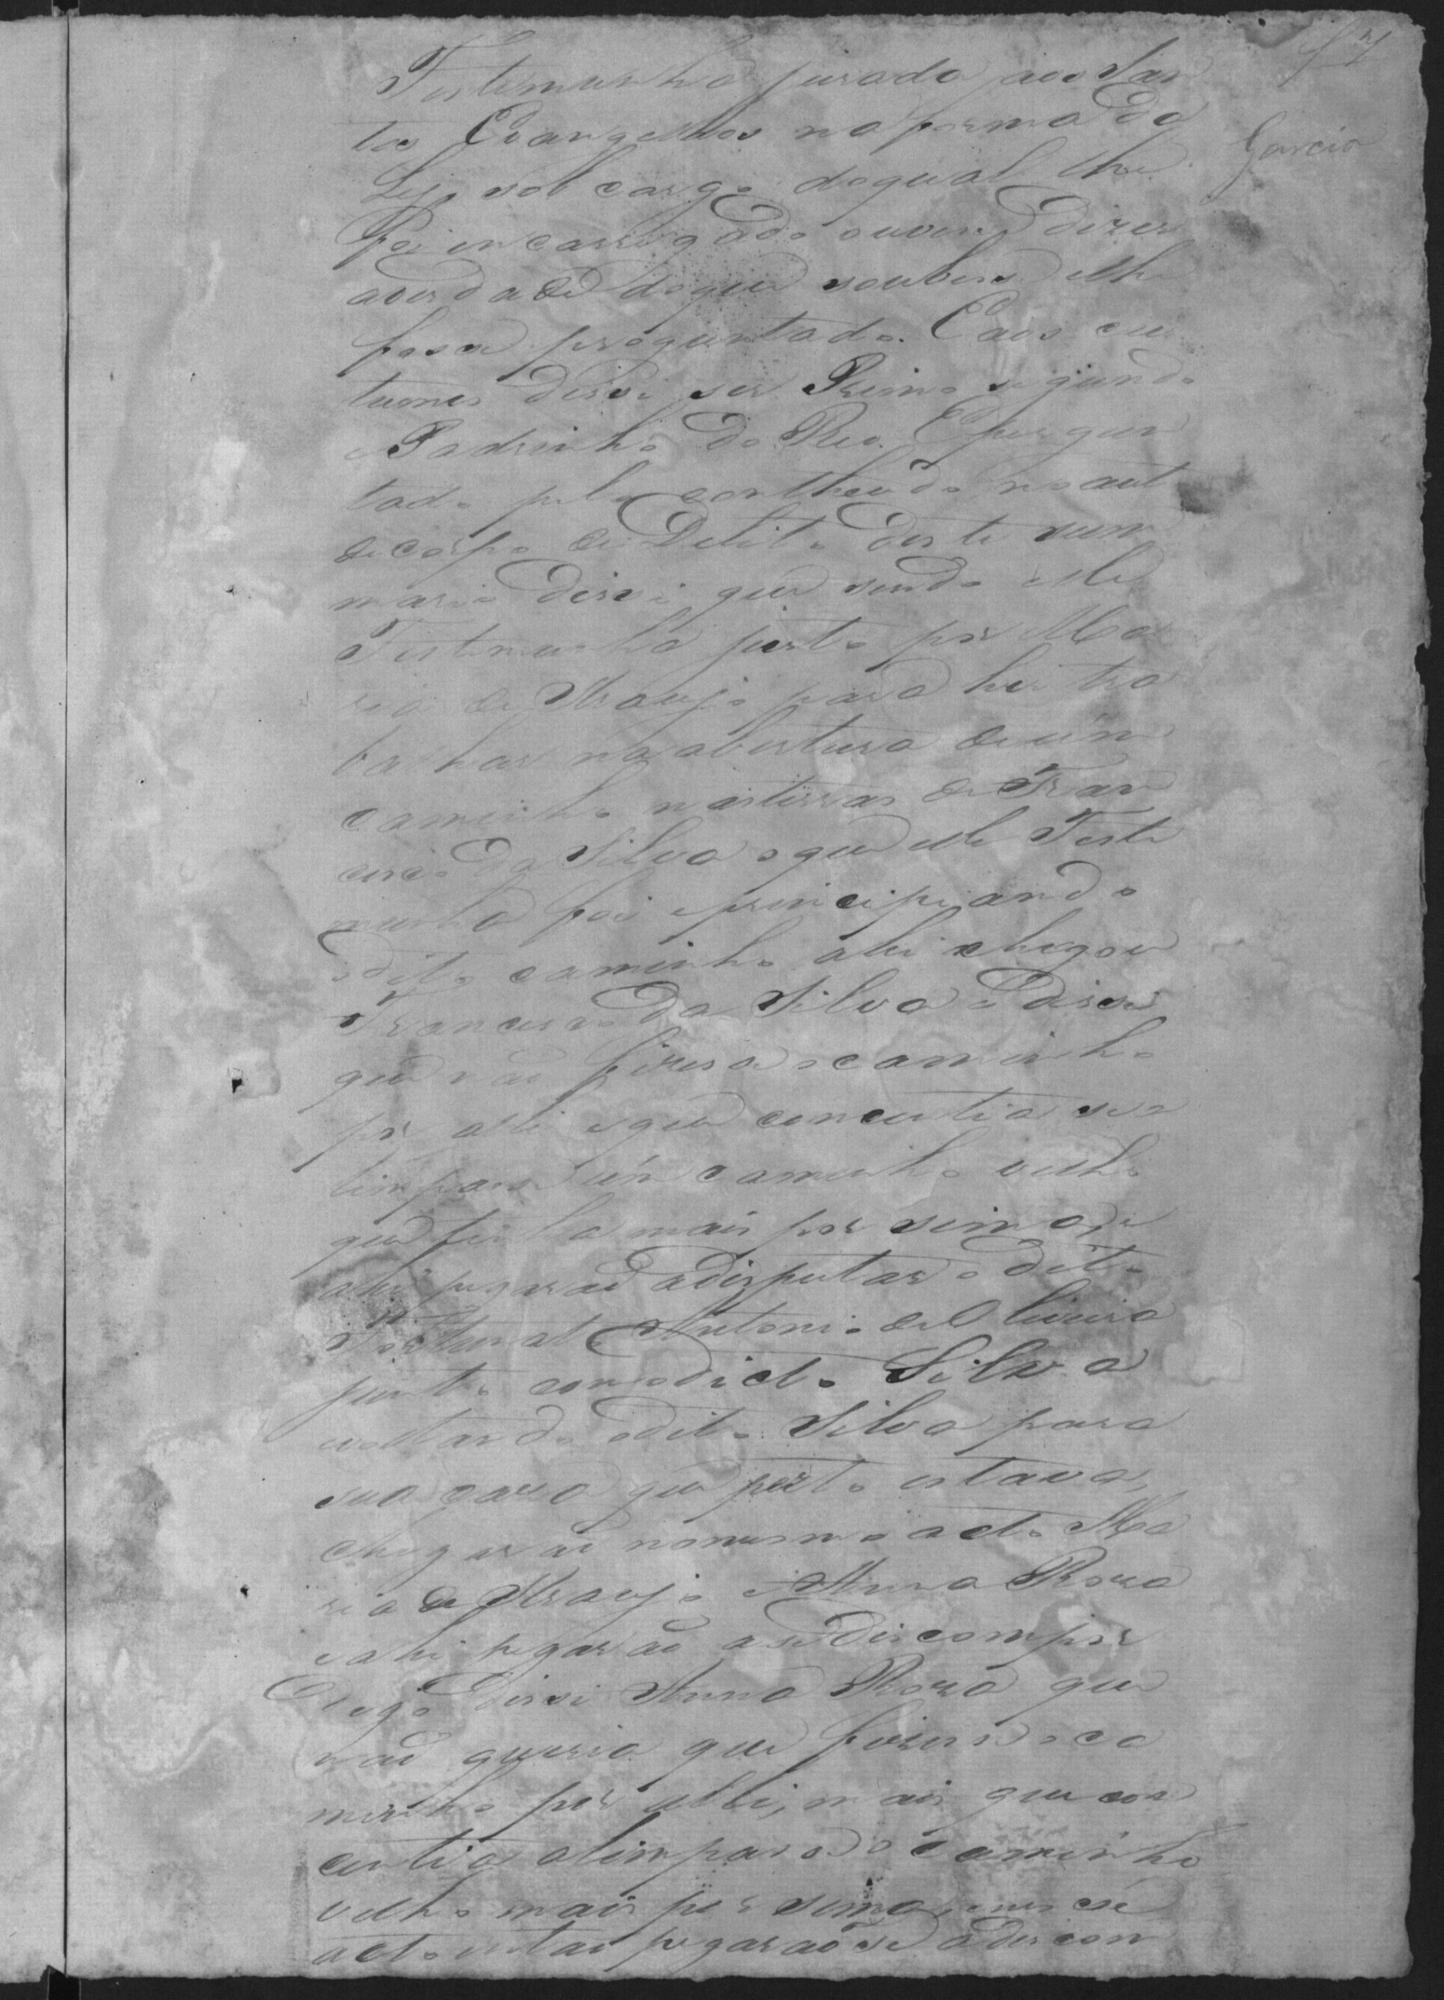 Garcia
Testemunha jurada aos San
tos Evangelhos na forma da
Lei sob cargo doqual lhe
foi encarregado ouvera dizer
averdade doque soubese elhe
fosse proguntado. Eaos cus
tumes disse ser Primo segundo
e Padrinho do Reo. Epergun
tado pelo contheudo no auto
de corpo de Delito deste sum
mario disse que sendo elle
Testemunha justo por Ma
ria de Araujo para her tra
balhar na abertura de ũm
caminho nasterras de Fran
cisco da Silva oque elle Teste
munha foi eprincipiando
odito caminho alli chegou
Francisco da Silva e disse
que não fizese o caminho
por alli eque concentia se
limpase ũm caminho velho
que tinha mais por sima, e
ahi pegarão adisputar o dito
Fortunato Antonio de Oliveira
junto com o dicto Silva
voltando odito Silva para
sua caza que perto estava,
chegarão nomesmo acto Ma
ria de Araujo e Anna Roza
e ahi pegarão ase discompor
Logo disse Anna Roza que
não queria que fizese o ca
minho por alli, mais que con
centia alimpase o caminho
velho mais por sima, enesse
acto entao pegarãose a discon